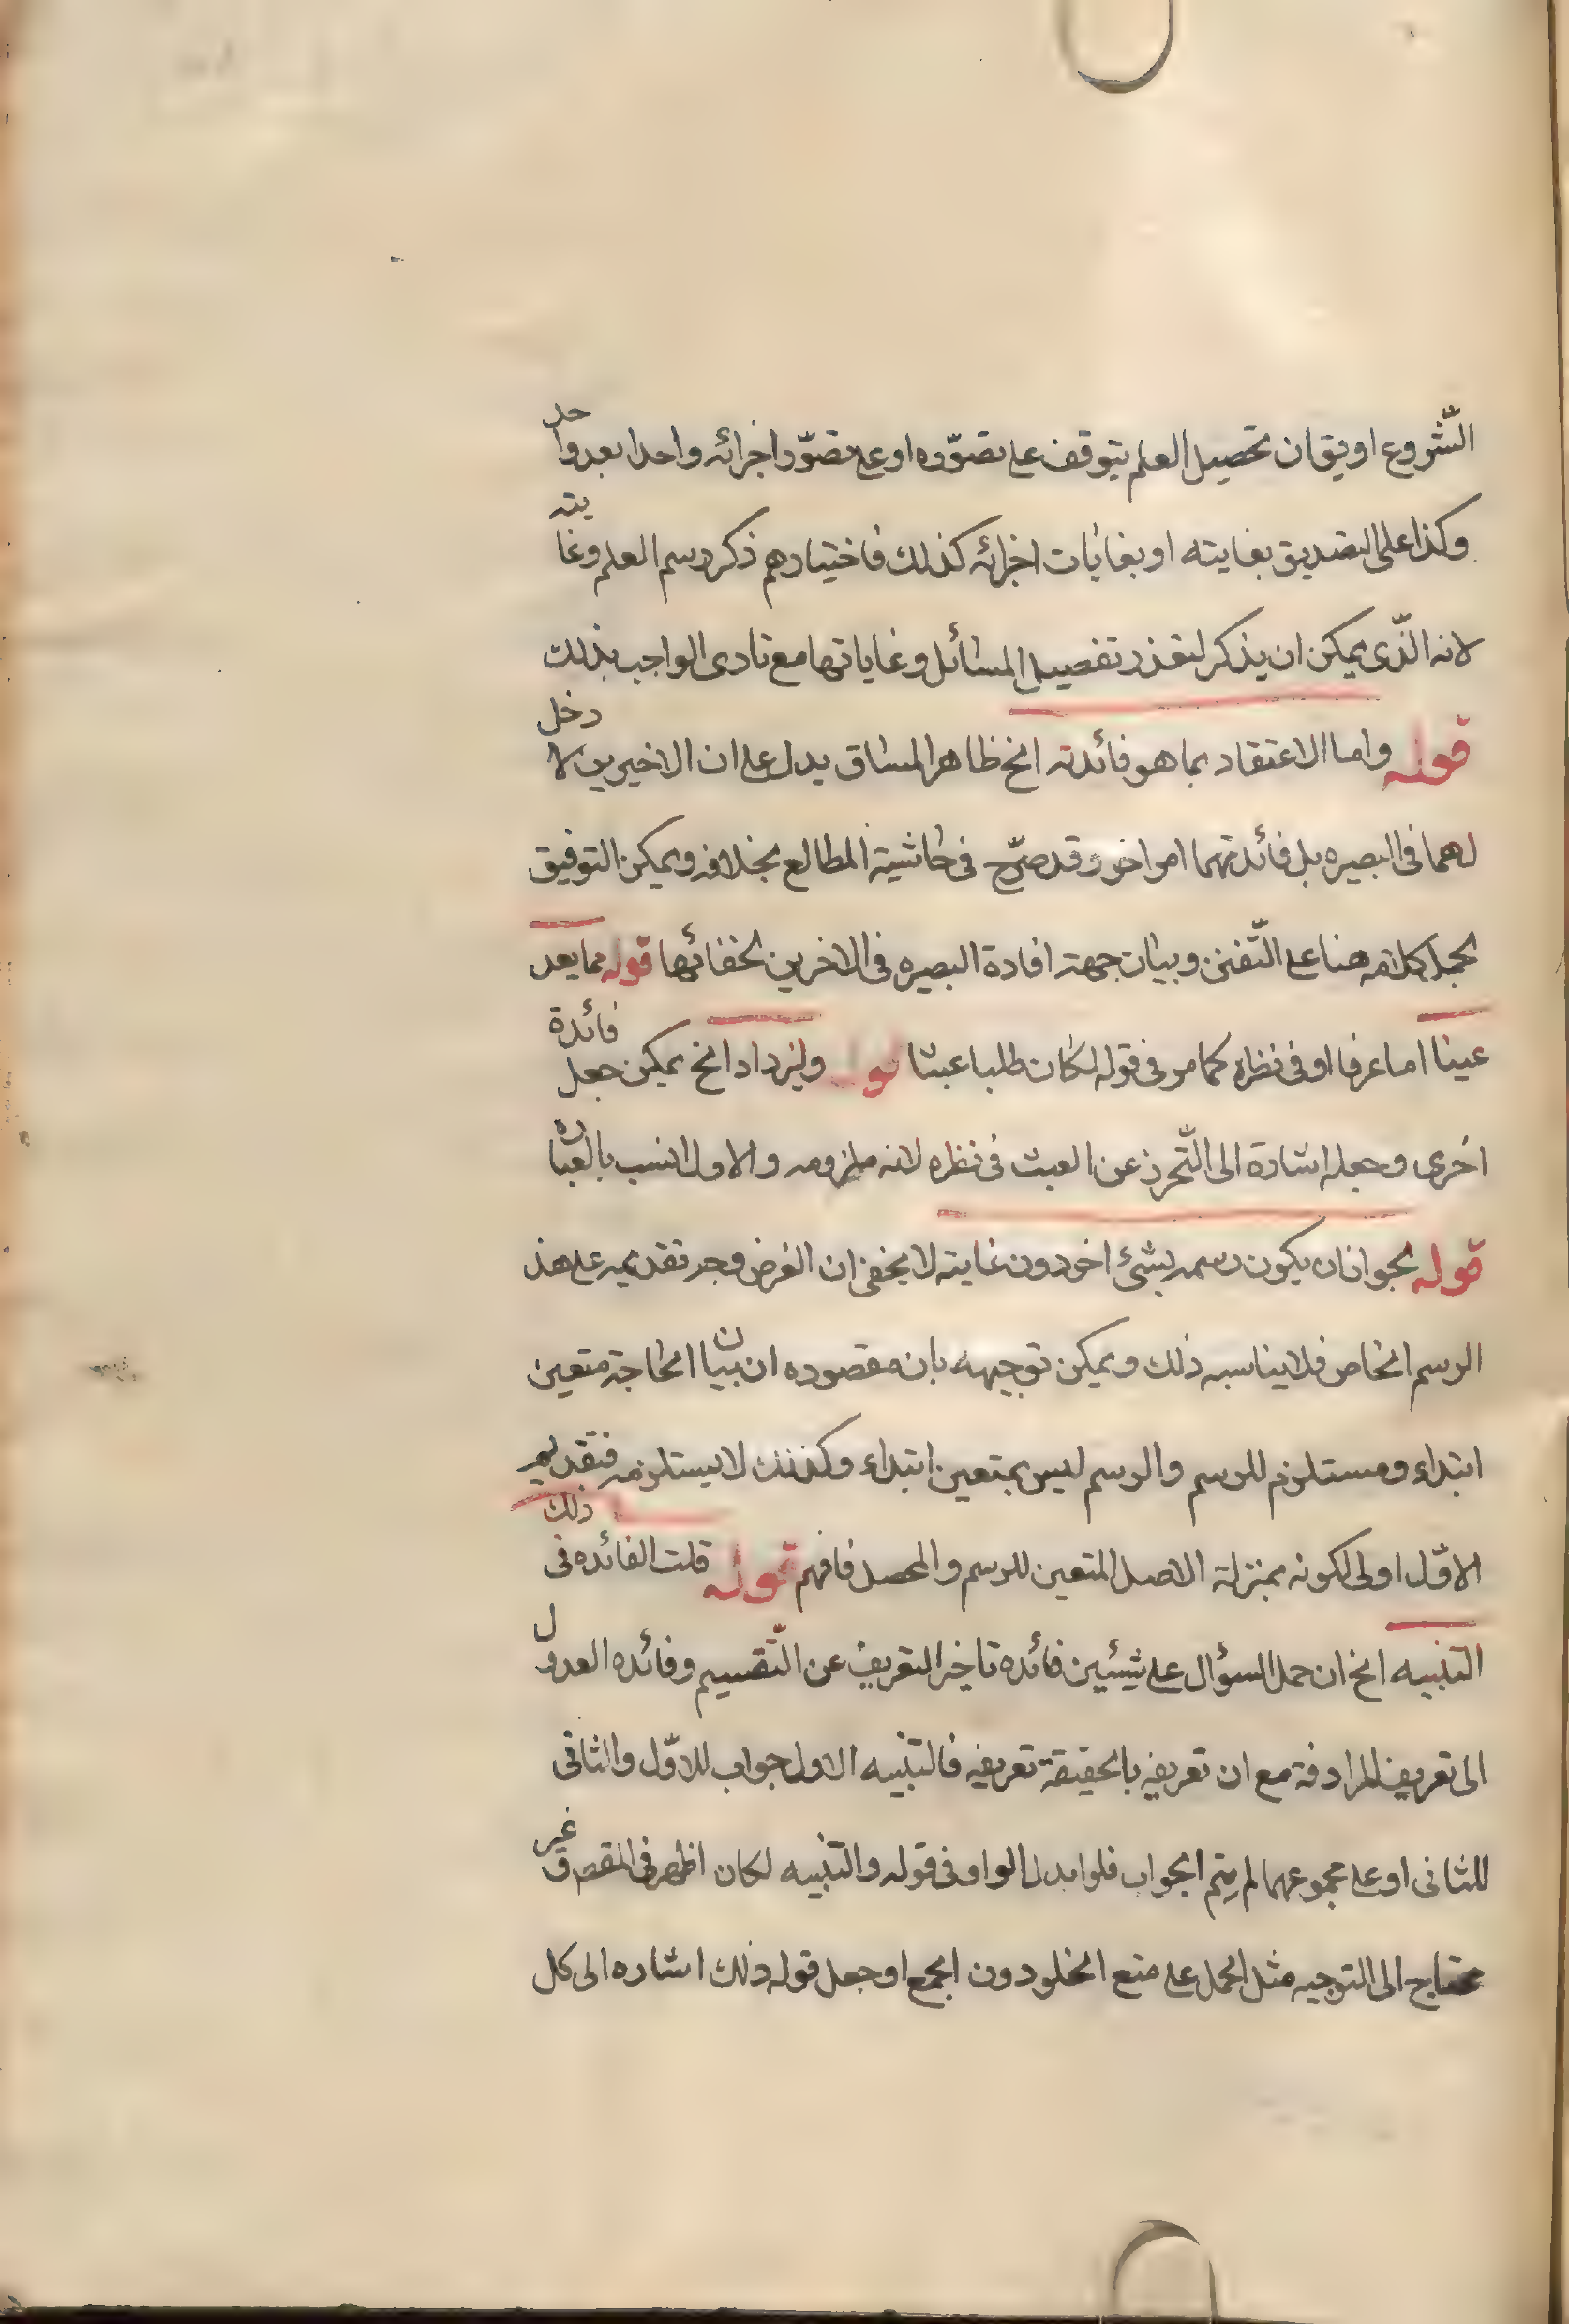 الشّروع او يق ان تحصيل العلم يتوقف على تصوّره او على تصوّر اجزائه واحدا بعد واحد
وكذا على التصديق بغايته او بغايات اجزائه كذلك فاختيارهم ذكر رسم العلم وغايته
لانه الذّى يمكن ان يذكر لتعذر تفصيل المسائل وغاياتها مع تادى الواجب بذلك
قوله واما الاعتقاد بما هو فائدته الخ ظاهر المساق يدل على ان الاخيرين لا دخل
لهما فى البصيره بل فائدتهما امر اخر وقد صرّح فى حاشية المطالع بخلافه ويمكن التوفيق
بحمل كلامه هنا على التّفنن وبيان جهة افادة البصيره فى الاخرين لخفائها قوله مما يعد
عبثا اما عرفا او فى نظره كما مر فى قوله لكان طلبا عبثا قوله وليزداد الخ يمكن جعل فائدة
اخرى وجعله اشارة الى التّحرز عن العبث فى نظره لانه ملزومه والاول انسب بالعباره
قوله لجواز ان يكون رسمه بشئ اخر دون غايته لا يخفى ان الغرض وجه تقديمه على هذ
الرسم الخاص فلا يناسبه ذلك ويمكن توجيهه بان مقصوده ان بيان الحاجة متعين
ابتداء ومستلزم للرسم والرسم ليس بمتعين ابتداء وكذلك لا يستلزمه فتقديم
الاوّل اولى لكونه بمنزلة الاصل المتعين للرسم والمحصل فافهم قوله قلت الفائده فى ذلك
التنبيه الخ ان حمل السؤال على شيئين فائده تاخير التعريف عن التّقسيم وفائده العدول
الى تعريف المرادفة مع ان تعريفه بالحقيقة تعريفه فالتنبيه الاول جواب للاوّل والثانى
للثانى او على مجموعهما لم يتم الجواب فلو ابدل الواو فى قوله والتنبيه لكان اظهر فى المقصود غير
محتاج الى التوجيه مثل الحمل على منع الخلو دون الجمع او جعل قوله ذلك اشاره الى كل